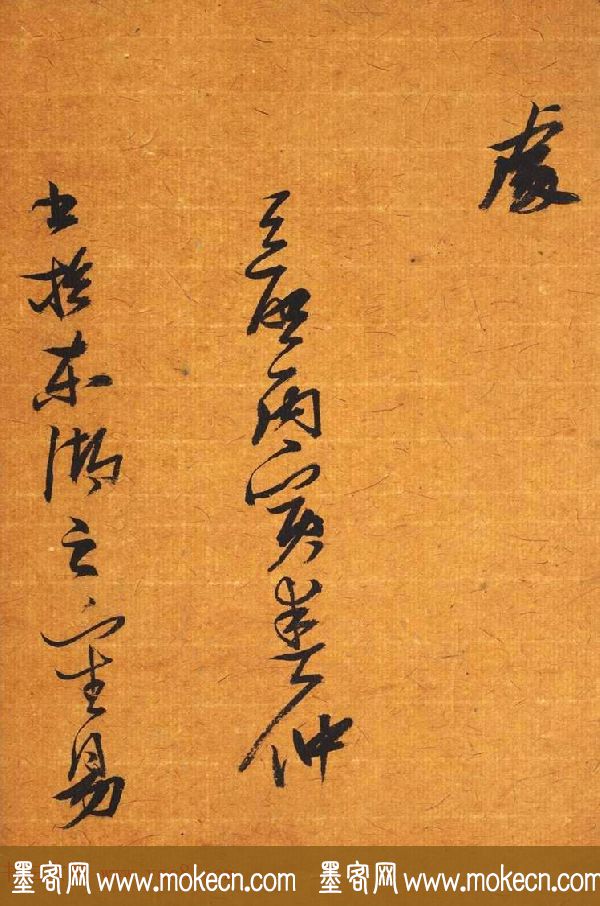 處
天啟丙寅春仲
書於東湖之 易
墨客网 www.mokecn.com 墨客网 www.mokecn.com